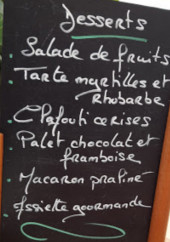 Desserts
. Salade de fruits
. Tarte myrtilles et
Rhubarbe
. Clafouti cerises
. Palet chocolat et
framboise
. Macaron praliné
. Assiette gourmande